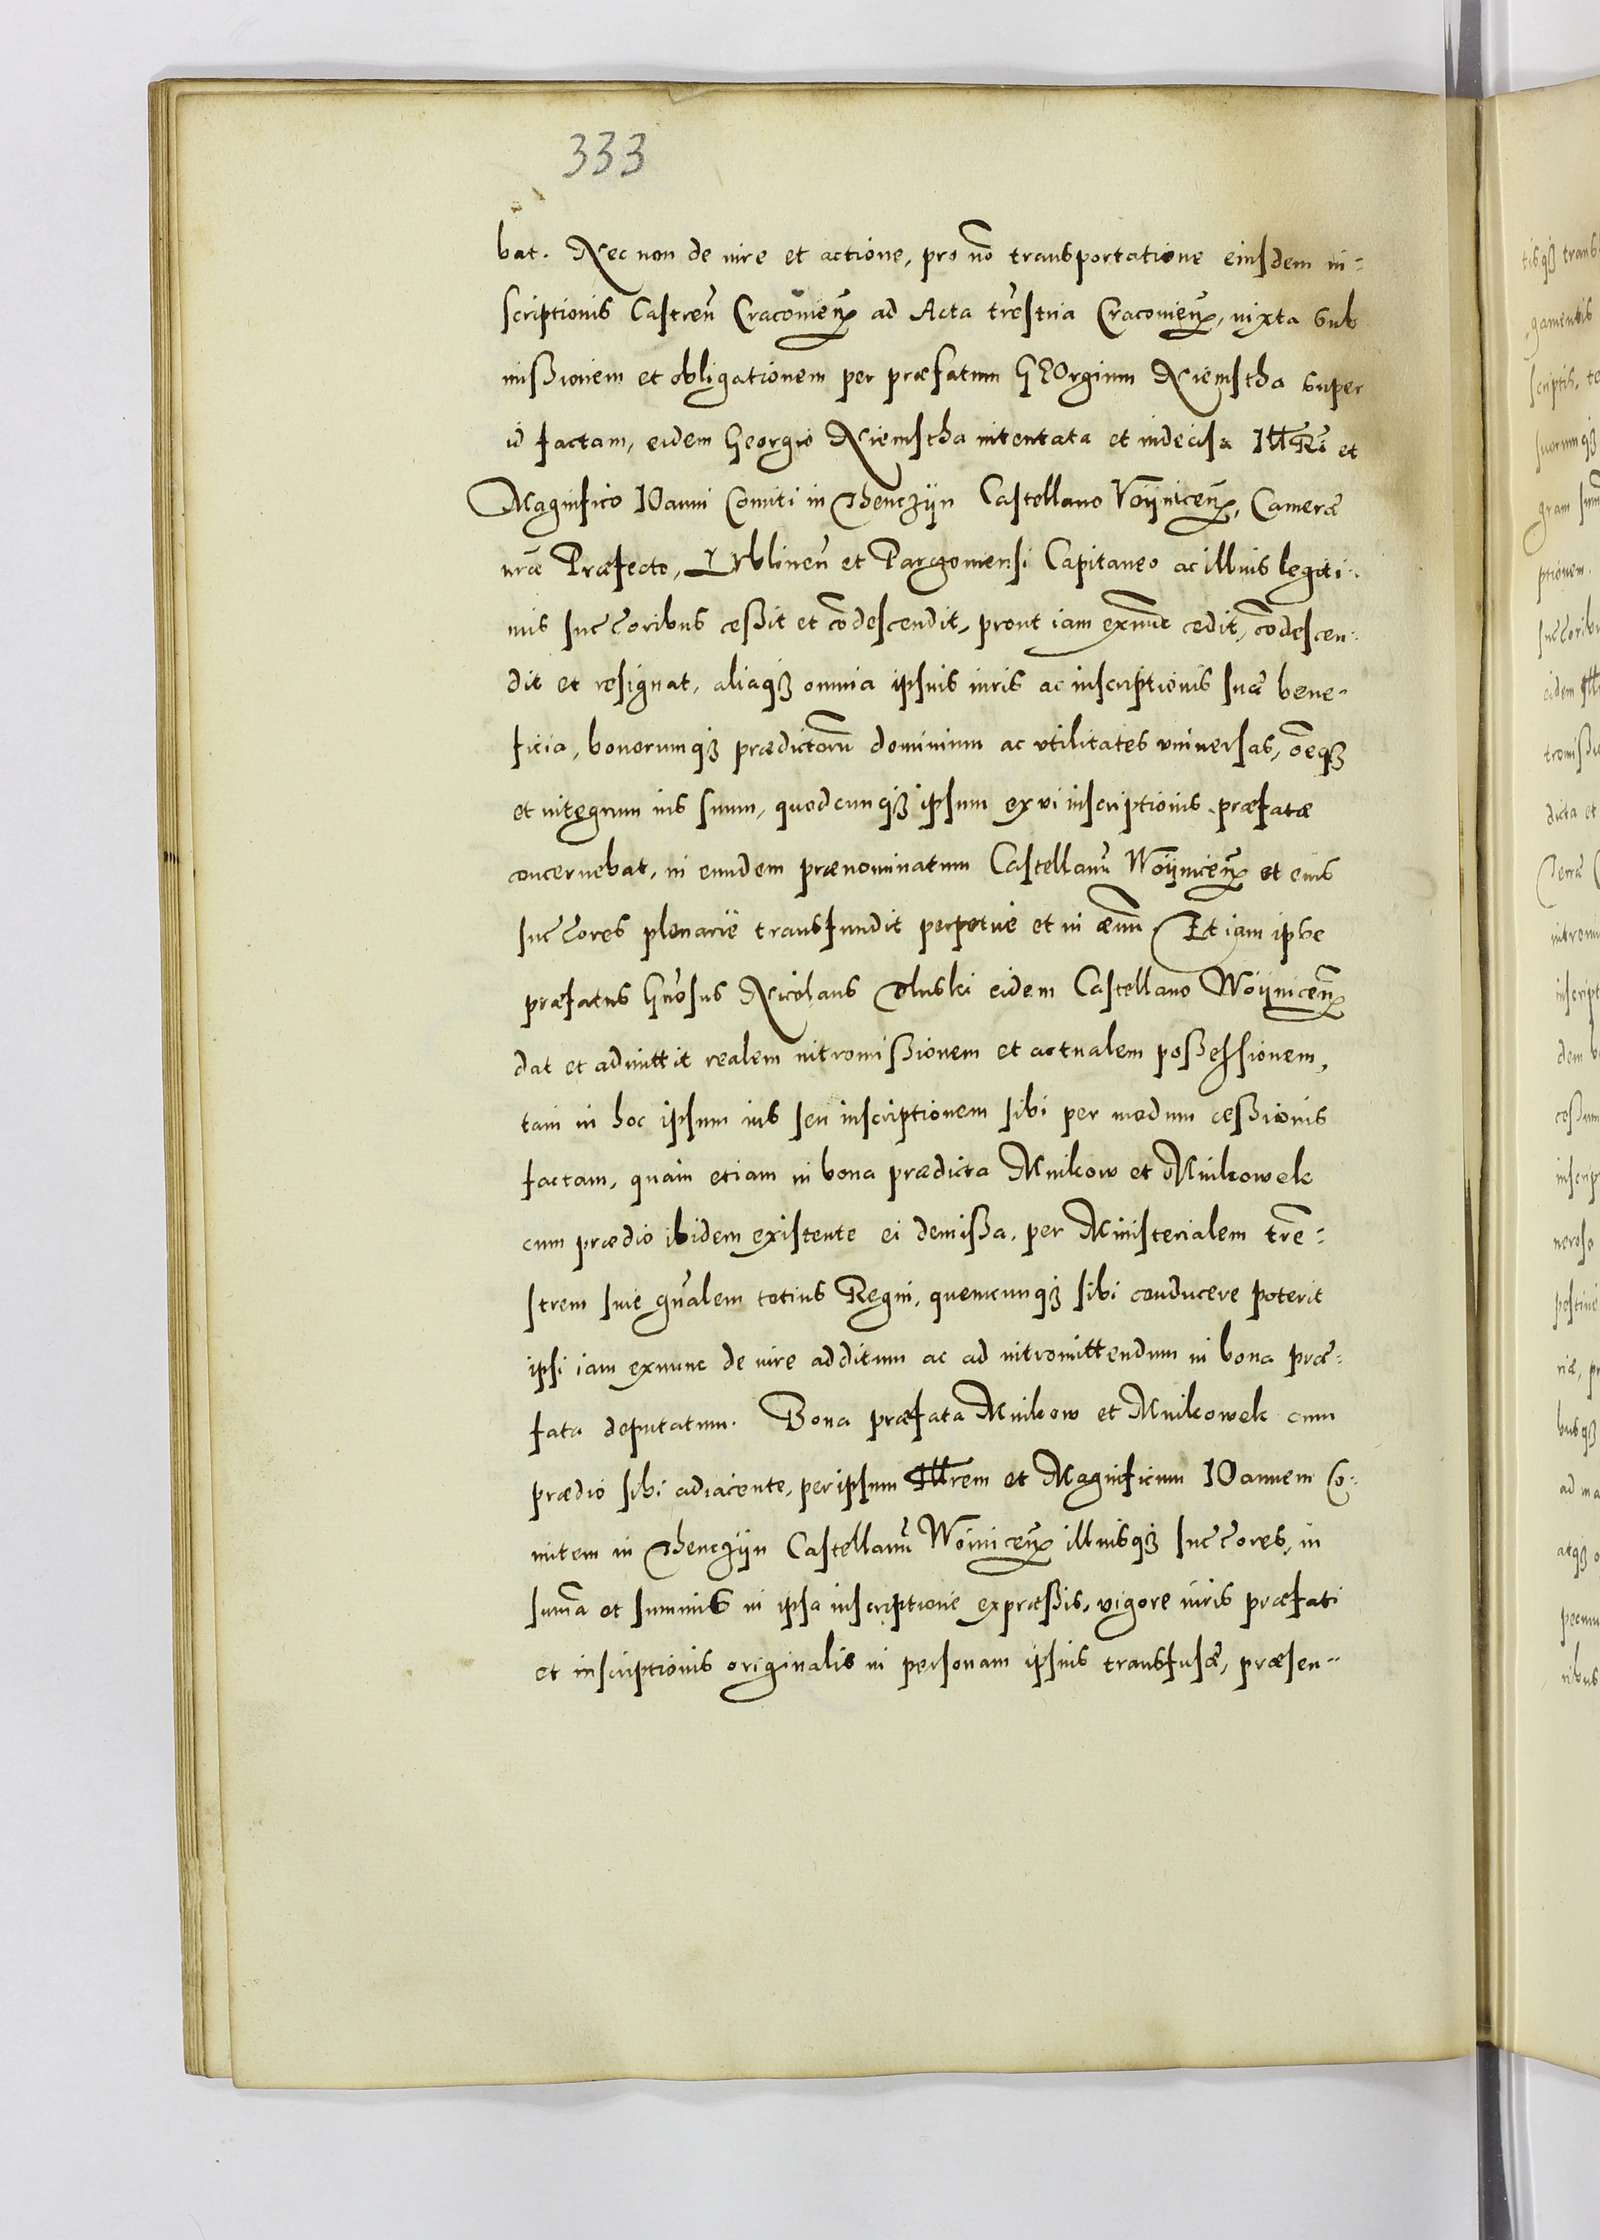 333
bat. Nec non de iure et actione, pro nõ transportatione eiusdem in=
scriptionis Castreñ Cracovieñ ad Acta trestria Cracovieñ, iuxta sub
missionem et obligationem per præfatum GEOrgium Niemstha super
id factam, eidem Georgio Niemstha intentata et indecisa Illri et
Magnifico IOanni Comiti in Thenczijn Castellano Voijniceñ, Cameræ
nræ Præfecto, Lublineñ et Parczoviensi Capitaneo ac illius legiti=
mis succoribus cessit et codescendit, prout iam exnunc cedit, codescen=
dit et resignat, aliaq3 omnia ipsius iuris ac inscriptionis suæ bene=
ficia, bonorumq3 prædictorũ dominium ac utilitates universas, oẽq3
et integrum ius suum, quodcunq3 ipsum ex vi inscriptionis præfatæ
concernebat, in eundem prænominatum Castellanũ Woijniceñ et eius
succores plenariè transfundit perpetuè et in ævum. Et iam ipse
præfatus Gñosus Nicolaus Tluski eidem Castellano Woijniceñ
dat et admittit realem intromissionem et actualem possessionem,
tam in hoc ipsum ius seu inscriptionem sibi per modum cessionis
factam, quàm etiam in bona prædicta Mnikow et Mnikowek
cum prædio ibidem existente ei demissa, per Ministerialem trẽ=
strem sive gñalem totius Regni, quemcunq3 sibi conducere poterit
ipsi iam exnunc de iure additum ac ad intromittendum in bona præ=
fata deputatum. Bona præfata Mnikow et Mnikowek cum
prædio sibi adiacente, per ipsum Illrem et Magnificum IOannem Co=
mitem in Thenczijn Castellanũ Woiniceñ illiusq3 succores, in
sum̃a et summis in ipsa inscriptione expressis, vigore iuris præfati
et inscriptionis originalis in personam ipsius transfusæ, præsen=